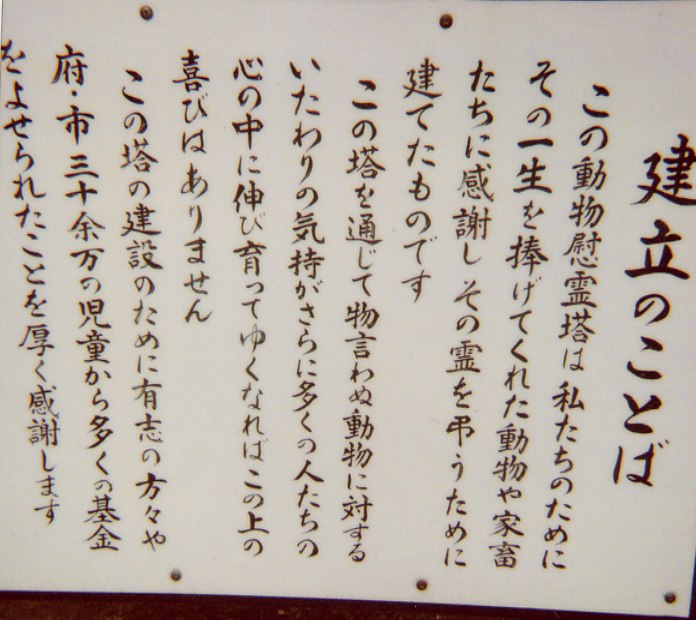 建立のことば
この動物慰霊塔は私たちのために
その一生を捧げてくれた動物や家畜
たちに感謝しその霊を弔うために
建てたものです
この塔を通じて物言わぬ動物に対する
いたわりの気持がさらに多くの人たちの
心の中に伸び育ってゆくなればこの上の
喜びはありません
この塔の建設のために有志の方々や
府・市三十余万の児童から多くの基金
をよせられたことを厚く感謝します